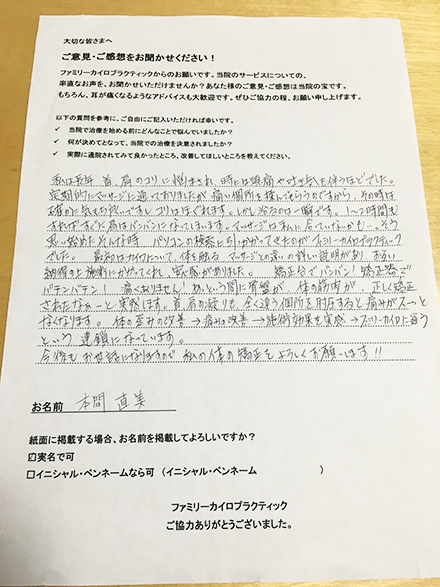 大切な皆さまへ
ご意見・ご感想をお聞かせください！
ファミリーカイロプラクティックからのお願いです。当院のサービスについての、
率直なお声を、お聞かせいただけませんか？あなた様のご意見・ご感想は当院の宝です。
もちろん、耳が痛くなるようなアドバイスも大歓迎です。ぜひご協力の程、お願い申し上げます。
以下の質問を参考に、ご自由にご記入いただければ幸いです。
✓ 当院で治療を始める前にどんなことで悩んでいましたか？
✓ 何が決めてとなって、当院での治療を決意されましたか？
✓ 実際に通院されてみて良かったところ、改善してほしいところを教えてください。
私は長年 首、肩のコリに悩まされ 時には頭痛や吐き気も伴うほどでした。
定期的にマッサージに通っておりましたが 痛い個所を揉んでもらうのですから、その時は
確かに気も持ちいいですし コリはほぐれます。しかし 治るのは一瞬です。1〜2時間も
すればすぐに肩はパンパンになってしまいます。マッサージは私に合ってないかも…。そう
思い始めたそんな時 パソコンの検索に引っかかってきたのがファミリーカイロプラクティック
でした。 最初はカイロについて、体を触る マッサージとの違いの詳しい説明があり、お互い
納得の上施術にかかってくれ 安心感がありました。 矯正台でバンバン！矯正器で
バチンバチン！ 痛くありません！あっという間に骨盤が 体の筋肉が 正しく矯正
されたなぁーと 実感します。首、肩の凝りも 全く違う個所を 押圧すると痛みがスーッと
なくなります。 体の歪みの改善 → 痛みの改善 → 施術効果を実感 → ファミリーカイロに通う
という 連鎖になっています。
今後も お世話になりますので 私の体の矯正をよろしくお願いします!!
お名前 本間 直美
紙面に掲載する場合、お名前を掲載してよろしいですか？
☑実名で可
□イニシャル・ペンネームなら可 （イニシャル・ペンネーム ）
ファミリーカイロプラクティック
ご協力ありがとうございました。